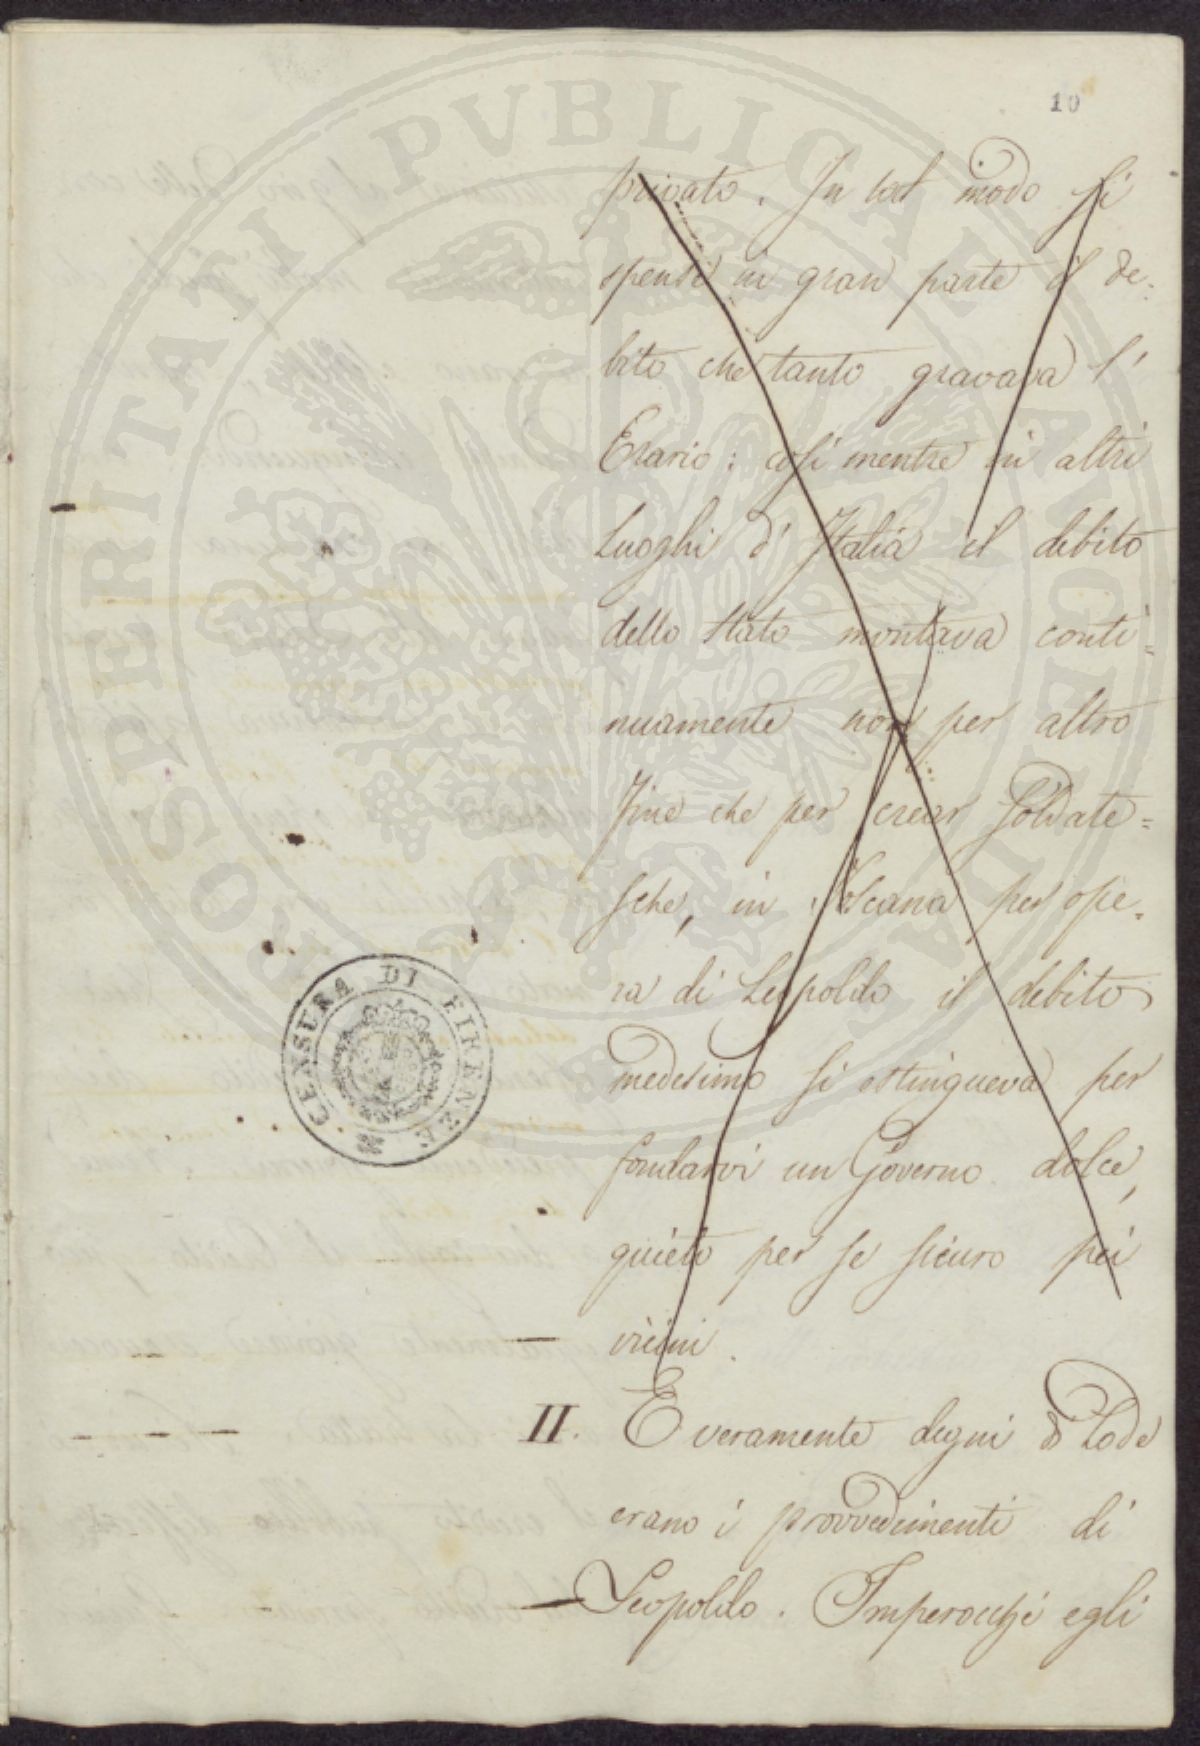 10
privato. In tal modo si
spense in gran parte il de=
bito che tanto gravava l'
Erario: così mentre in altri
Luoghi d'Italia il debito
dello Stato montava conti=
nuamente non per altro
fine che per crear Soldate=
sche, in Toscana per ope=
ra di Leopoldo il debito
medesimo si estingueva per
fondarvi un Governo dolce,
quieto per se sicuro pei
vicini.
II. E veramente degni di lode
erano i provvedimenti di
Leopoldo. Imperocchè egli
CENSURA DI FIRENZE
PROSPERITATI PVBLICAE AVGENDAE